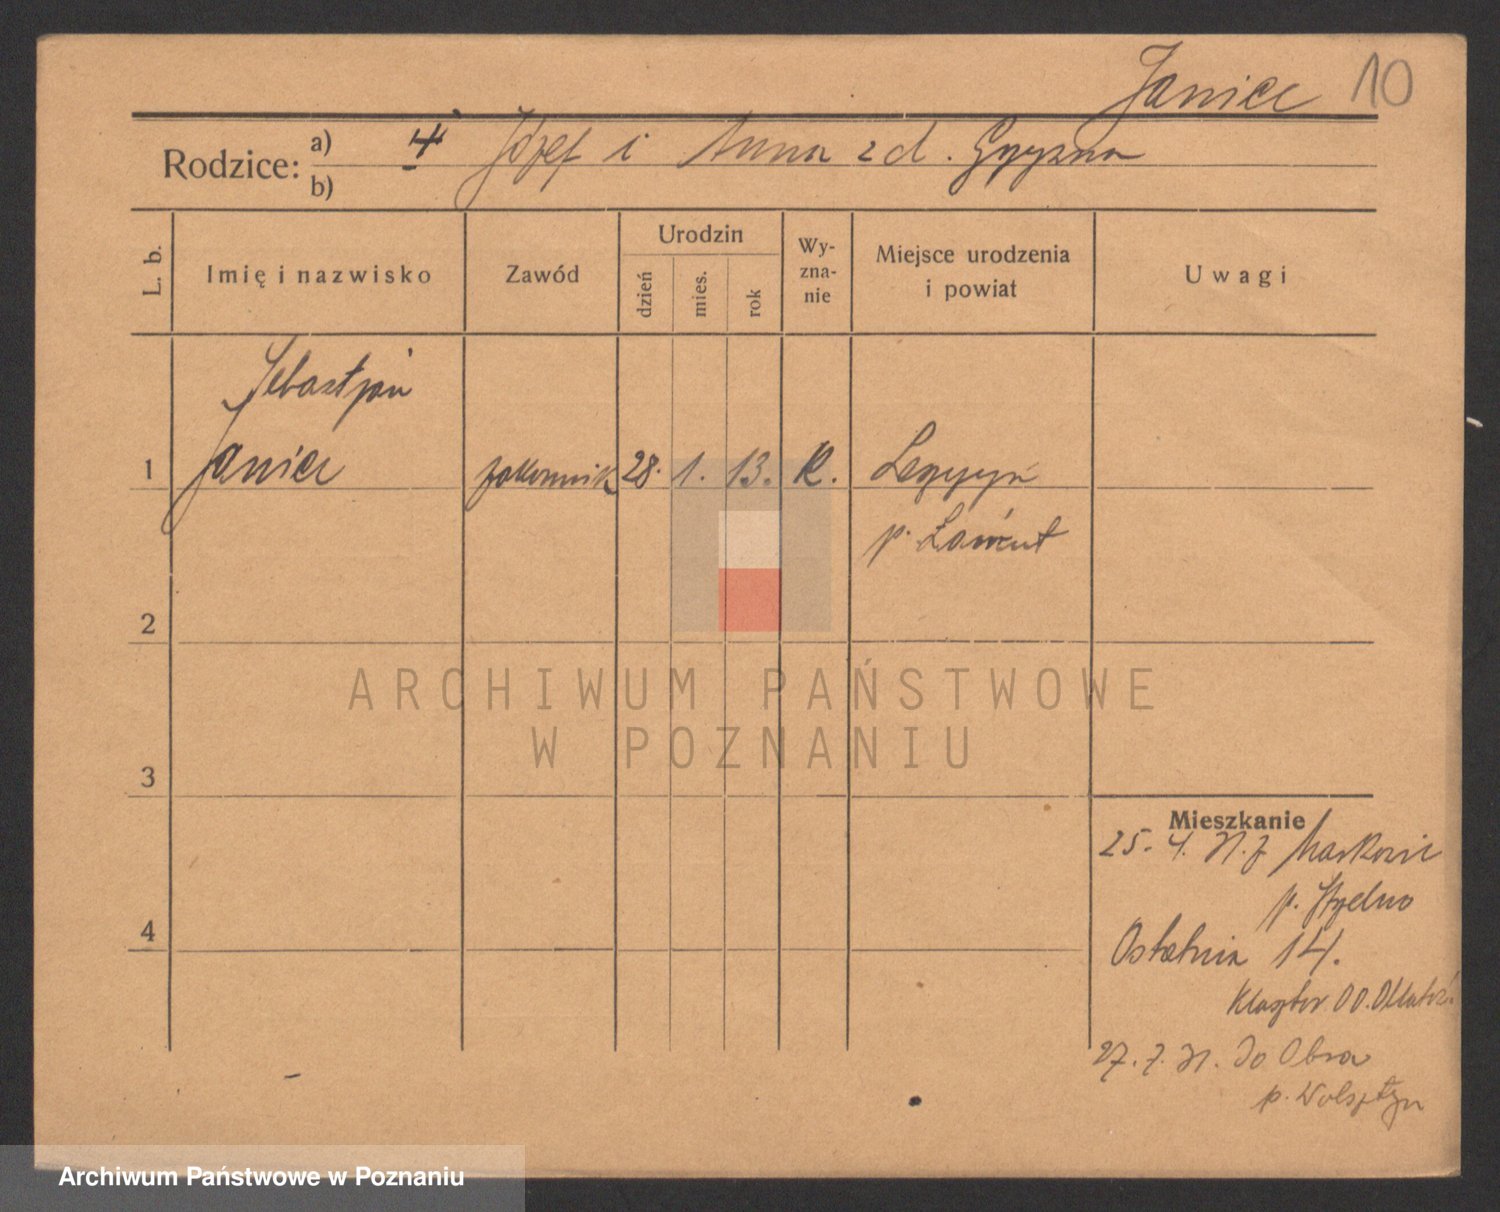 Janiec 10
Rodzice: a) 4 Józef i Anna z d.
b)
L. b. Imię i nazwisko Zawód Urodzin dzień mies. rok Wy-zna-nie Miejsce urodzenia i powiat Uwagi
Sebastjan
1 Janiec zakonnik 28. 1. 13. K.
p. Łańcut
2
3
4
Mieszkanie
25. 4. 31. z Markowic
p. Strzelno
Ostatnia 14.
Klasztor OO. Oblatów
27. 7. 31. do Obra
p. Wolsztyn
ARCHIWUM PAŃSTWOWE
W POZNANIU
Archiwum Państwowe w Poznaniu